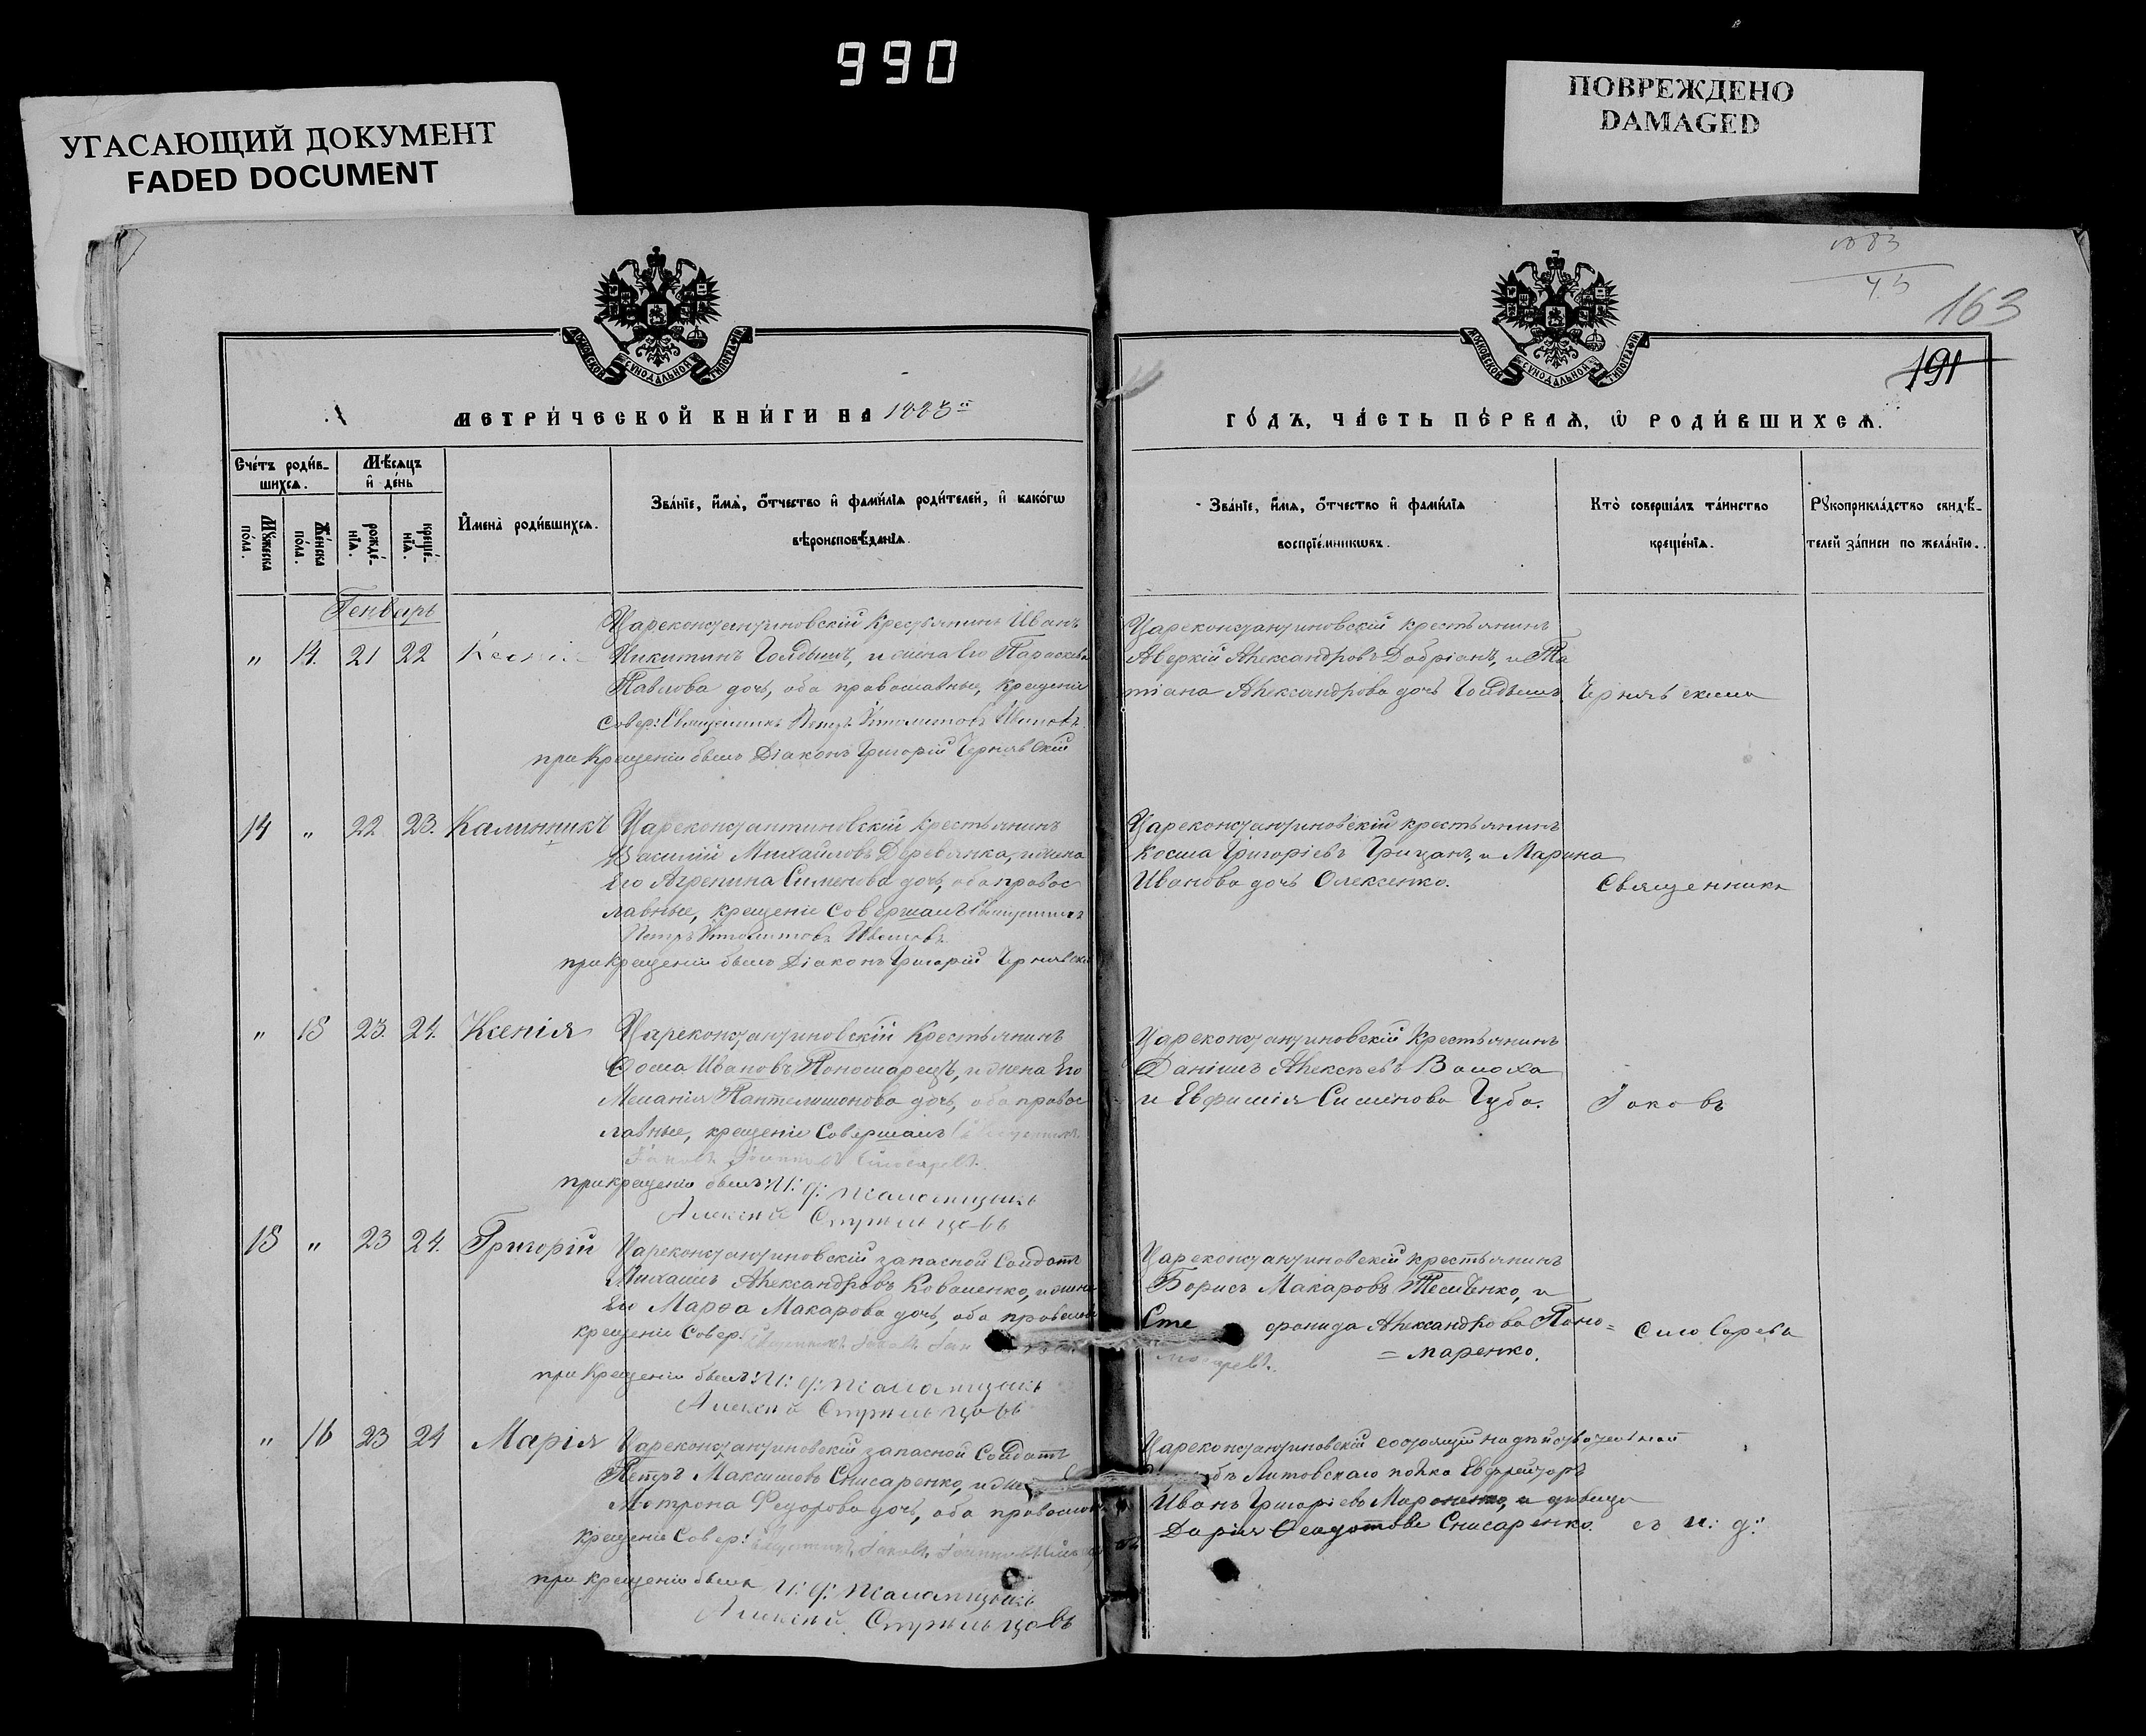 990
УГАСАЮЩИЙ ДОКУМЕНТ
FADED DOCUMENT
ПОВРЕЖДЕНО
DAMAGED
163
191
МЕТРИ́ЧЕСКОЙ КНИ́ГИ НА 1883
ГО́ДЪ, ЧА́СТЬ ПЕ́РВАѦ, Ѡ РОДИ́ВШИХСѦ.
Сче́тъ роди́в-
шихсѧ.
Мѣ́сѧцъ
и҆ де́нь
Мꙋ́жеска
по́ла.
Же́нска
по́ла.
рожде́-
нїѧ.
креще́-
нїѧ.
И҆мена̀ роди́вшихсѧ.
Зва́нїе, и҆́мѧ, ѻ҆́тчество и҆ фами́лїѧ роди́телей, и҆ како́гѡ
вѣроисповѣ́данїѧ.
Зва́нїе, и҆́мѧ, ѻ҆́тчество и҆ фами́лїѧ
воспрїе́мникѡвъ.
Кто̀ соверша́лъ та́инство
креще́нїѧ.
Рꙋкоприкла́дство свидѣ́-
телей за́писи по жела́нїю.
Генварь
" 14. 21 22
Цареконстантиновскій Крестьянинъ Иванъ
Никитинъ Голдышъ, и жена Его Параскева
Павлова дочь, оба православные, Крещеніе
Совер: Священникъ Петръ
при Крещеніи былъ Діаконъ Григорій Чернявскій
Цареконстантиновскій крестьянинъ
Аверкій Александровъ Добріанъ, и Та
тіана Александрова дочь Голдышъ
14 " 22 23. Калинникъ
Цареконстантиновскій Крестьянинъ
Василій Михайловъ Деревянка, и жена
Его Агрепина Сименова дочь, оба правос
лавные, крещеніе Совершалъ Священникъ
Петръ
при Крещеніи былъ Діаконъ Григорій Чернявскій
Цареконстантиновскій крестьянинъ
Косма Григоріевъ Грицанъ, и Марина
Иванова дочь Олексенко.
Священникъ
" 15 23. 24. Ксенія
Цареконстантиновскій Крестьянинъ
Фома Ивановъ Пономарецъ, и жена Его
Меланія Пантелимонова дочь, оба правос
лавные, крещеніе Совершалъ Священникъ
при крещеніи былъ И: д: Псаломщика
Алексій Стрѣльцовъ
Цареконстантиновскій Крестьянинъ
Даніилъ Алексѣевъ Волоха
и Евфимія Сименова Губа.
Іаковъ
15 " 23 24. Григорій
Цареконстантиновскій запасной Солдатъ
Михаилъ Александровъ Коваленко, и жена
Его Марфа Макарова дочь, оба православ
крещеніе Совер: Священникъ Іаковъ
при Крещеніи былъ И: д: Псаломщика
Алексій Стрѣльцовъ
Цареконстантиновскій крестьянинъ
Борисъ Макаровъ Тесленко, и
Сте фанида Александрова Поно=
= маренко.
Слюсарева
" 16 23 24 Марія
Цареконстантиновскій запасной Солдатъ
Петръ Максимовъ Снисаренко, и же
Мотрона Федорова дочь, оба православ
крещеніе Совер: Священникъ Іаковъ
при крещеніи былъ И: д: Псаломщика
Алексій Стрѣльцовъ
Цареконстантиновскій состоящій на дѣйствительной
Литовскаго полка Ефрейторъ
Иванъ Григоріевъ и дѣвица
Дарія Снисаренко.
съ и: д: